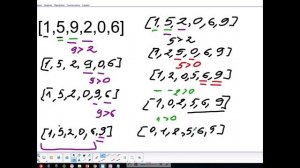 [1,5,9,2,0,6]
9>2
[1,5,2,9,0,6]
[1,5,2,0,9,6]
9>6
[1,5,2,0,6,9]
[1,5,2,0,6,9]
5>2
[1,2,5,0,6,9]
5>0
[1,2,0,5,6,9]
2>0
[1,0,2,5,6,9]
1>0
[0,1,2,5,6,9]